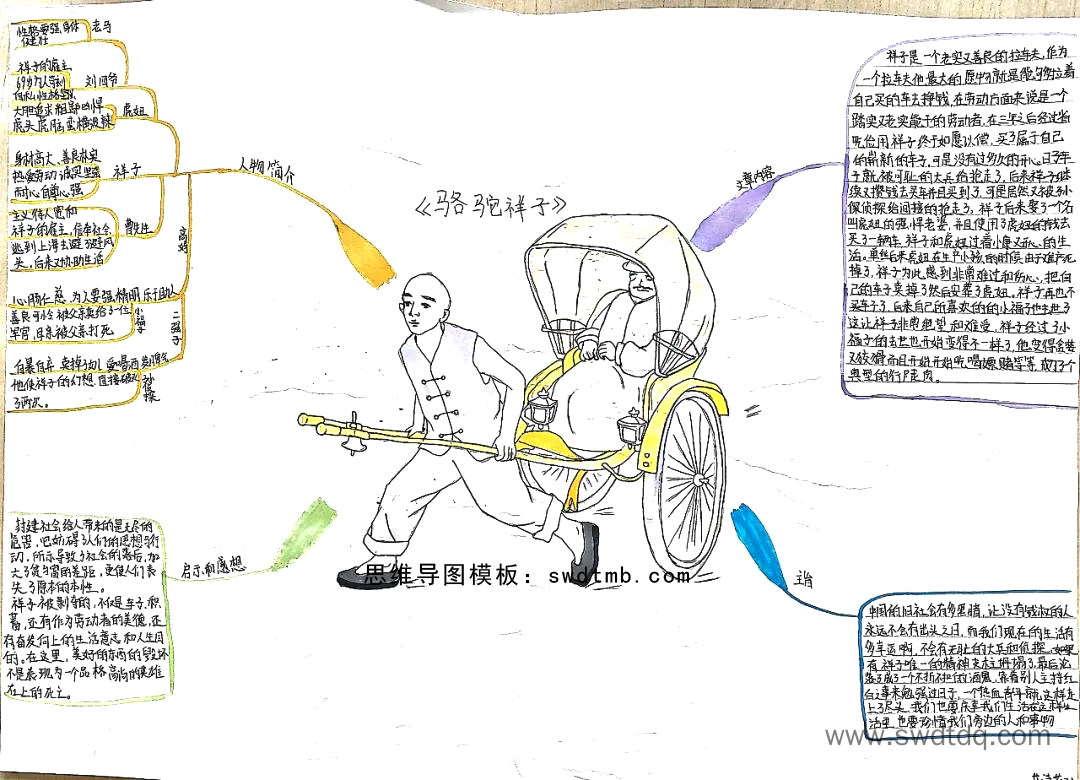 《骆驼祥子》
人物简介
老马
性格要强,身体
健壮
刘四爷
祥子的雇主
虎妞
虎头虎脑
祥子
身材高大、善良朴实
热爱劳动 诚实坚强
耐心 自尊心强
曹先生
祥子的雇主,信奉社会
逃到上海去避避风
头,后来又协助生活
高妈
心肠仁慈、为人要强精明乐于助人
小福子
善良可怜 被父亲卖给了一位
军官,母亲被父亲打死
二强子
自暴自弃 卖掉女儿
他使祥子的幻想
了两次。
文章内容
祥子是一个老实又善良的拉车夫,作为
一个拉车夫他最大的愿望就是能够拉着
自己买的车去挣钱,在劳动方面来说是一个
踏实又老实能干的劳动者,在三年之后经过省
吃俭用祥子终于如愿以偿,买了属于自己
的崭新的车子,可是没有过多久的开心日子车
子就被可耻的大兵给抢走了,后来祥子继
续又攒钱去买车并且买到了,可是居然又被孙
侦探给间接的抢走了,祥子后来娶了一个名
叫虎妞的强悍老婆,并且使用了虎妞的钱去
买了一辆车,祥子和虎妞过着小康又开心的生
活。虽然后来虎妞在生产小孩的时候由于难产死
掉了,祥子为此感到非常难过和伤心,把自
己的车卖掉了然后安葬了虎妞,祥子再也不
买车子了,后来自己所喜欢的的小福子也去世了
这让祥子非常绝望和难受,祥子经过了小
福子的去世也开始变得不一样了,他变得
又狡猾而且开始开始吃喝嫖赌等等,成了个
典型的行尸走肉。
启示和感想
封建社会给人带来的是无尽的
危害,它妨碍了人们的思想与行
动,所示导致了社会的落后,加
大了贫富的差距,更使人们丧
失了原本的本性。
祥子被剥夺的,不仅是车子、积
蓄,还有作为劳动者的美德,还
有奋发向上的生活意志和人生目
的。在这里,美好的东西的毁坏
不是表现为一个品格高尚的英雄
在上的死亡。
主旨
中国的旧社会有多黑暗,让没有钱权的人
永远不会有出头之日,而我们现在的生活有
多幸运啊,不会有无耻的大兵和侦探。如果
有祥子唯一的精神支柱坍塌了,最后沦
落了成了一个不折不扣的酒鬼,靠着别人主持红
白之事来勉强过日子,一个热血青年就这样走
上了尽头,我们也要庆幸我们生活在这样生
活里,也要珍惜我们身边的人和事物
思维导图模板:swdtmb.com
www.swdtdq.com